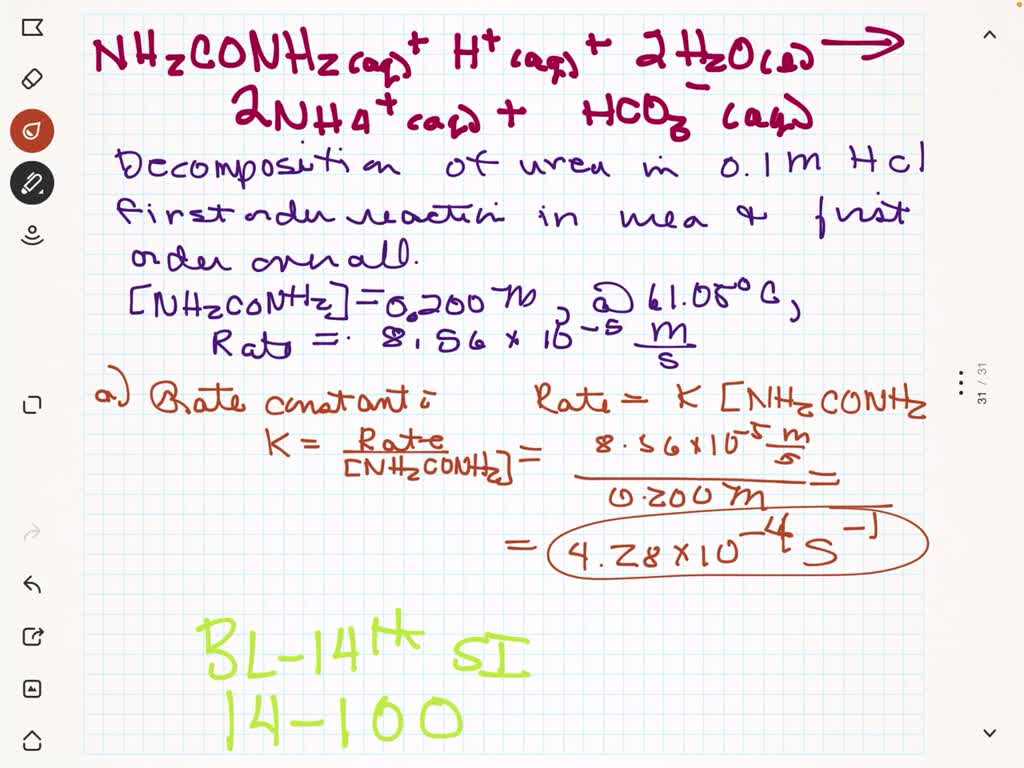 NH2CONH2(aq) + H+(aq) + 2H2O(l) →
2NH4+(aq) + HCO3-(aq)
Decomposition of urea in 0.1 m HCl
first order reaction in urea & first
order overall.
[NH2CONH2] = 0.200 m, @ 61.05°C,
Rate = 8.56 × 10-5 m/s
a.) Rate constant: Rate = K [NH2CONH2
K = Rate/[NH2CONH2] = 8.56 × 10-5 m/s / 0.200 m =
= 4.28 × 10-4 s-1
BL-14th SI
14-100
31 / 31